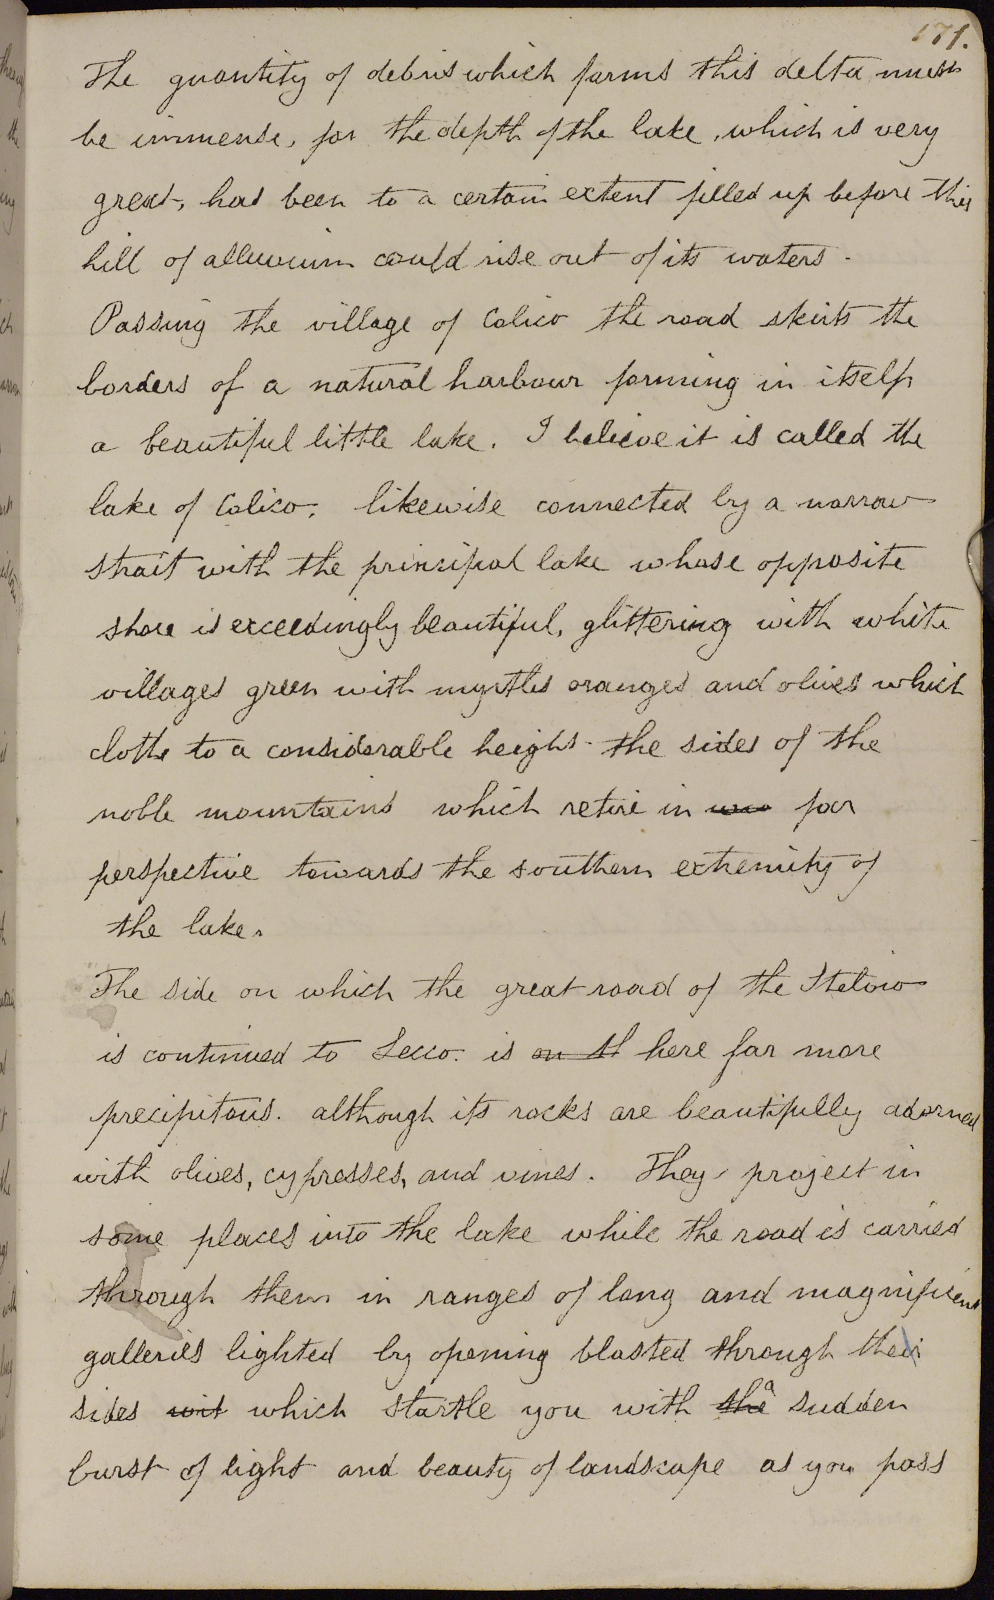 171.
The quantity of debris which forms this delta must
be immense, for the depth of the lake, which is very
great, had been to a certain extent filled up before this
hill of alluvium could rise out of its waters.
Passing the village of Colico the road skirts the
borders of a natural harbour forming in itself
a beautiful little lake. I believe it is called the
lake of Colico, likewise connected by a narrow
strait with the principal lake whose opposite
shore is exceedingly beautiful, glittering with white
villages green with myrtles oranges and olives which
clothe to a considerable height the sides of the
noble mountains which retire in far
perspective towards the southern extremity of
the lake.
The side on which the great road of the Stelvio
is continued to Lecco. is on th here far more
precipitous. although its rocks are beautifully adorned
with olives, cypresses, and vines. They project in
some places into the lake while the road is carried
through them in ranges of long and magnificent
galleries lighted by opening blasted through their
sides wit which startle you with the a sudden
burst of light and beauty of landscape as you pass